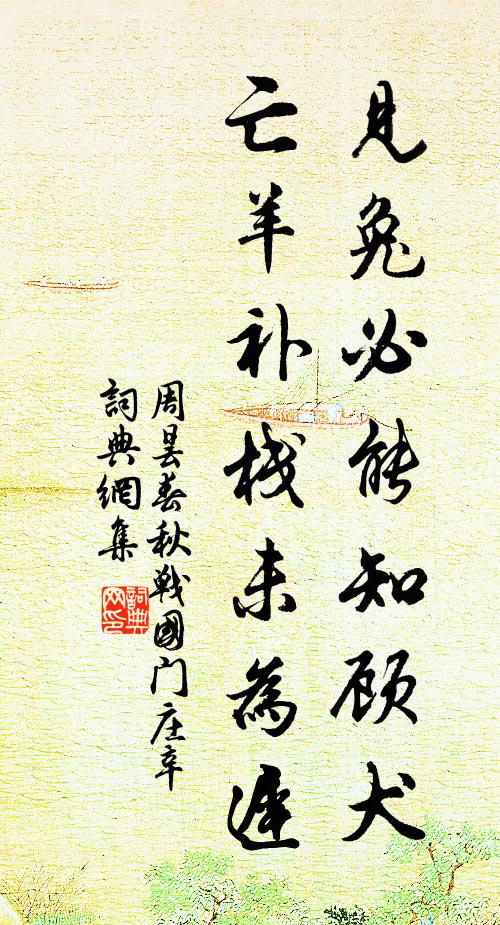 见兔必能知顾犬
亡羊补栈未为遲
周昙春秋戦國门庄辛
詞典網集
詞典网印